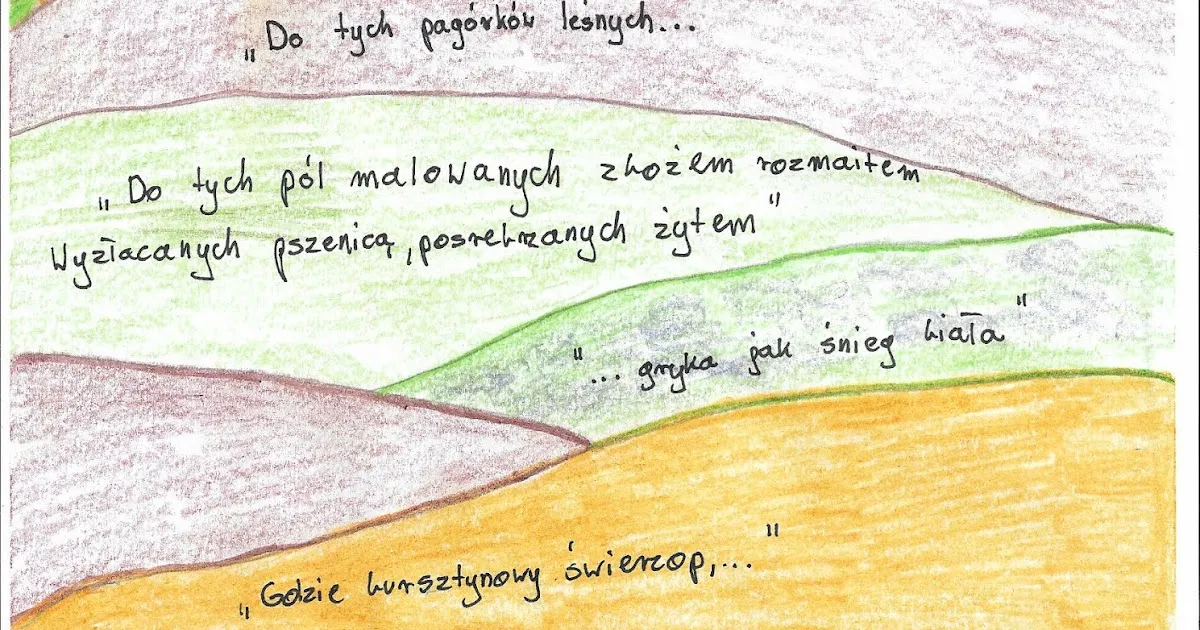 „Do tych pagórków leśnych...
„Do tych pól malowanych zbożem rozmaitem
Wyzłacanych pszenicą, posrebrzanych żytem”
"... gryka jak śnieg biała"
„Gdzie bursztynowy świerzop,..."